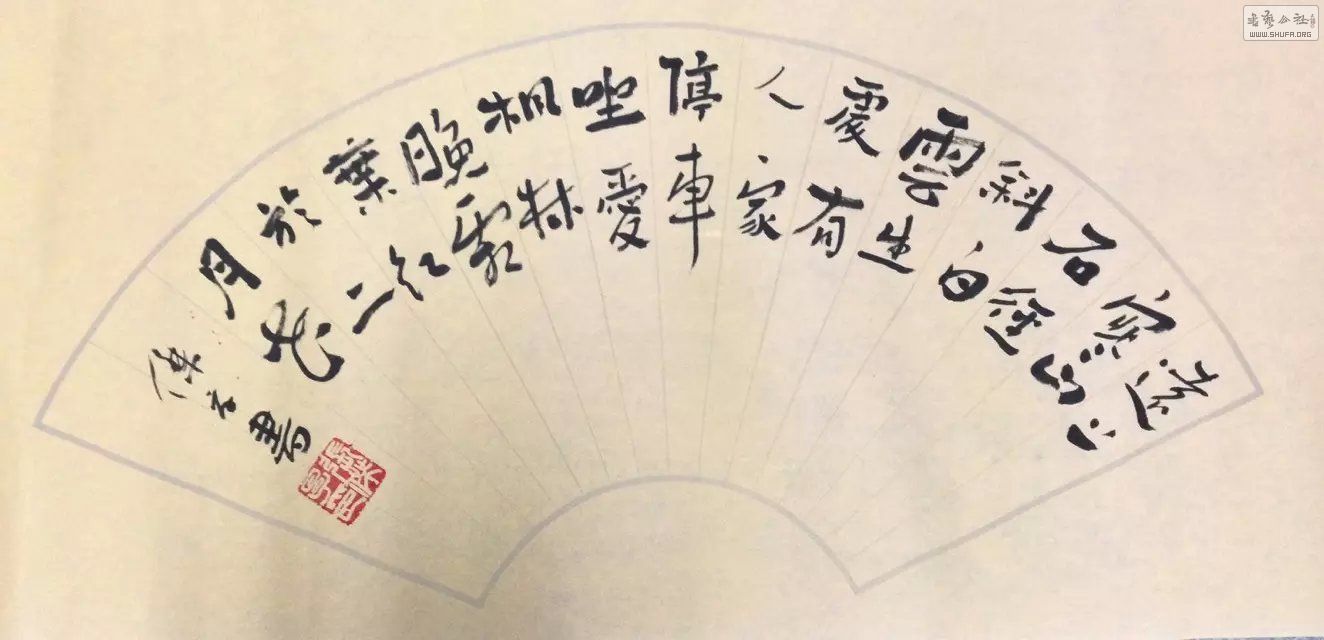 遠上
寒山
石徑
斜白
雲生
處有
人家
停車
坐愛
楓林
晚霜
葉紅
於二
月花
書
書藝公社
WWW.SHUFA.ORG